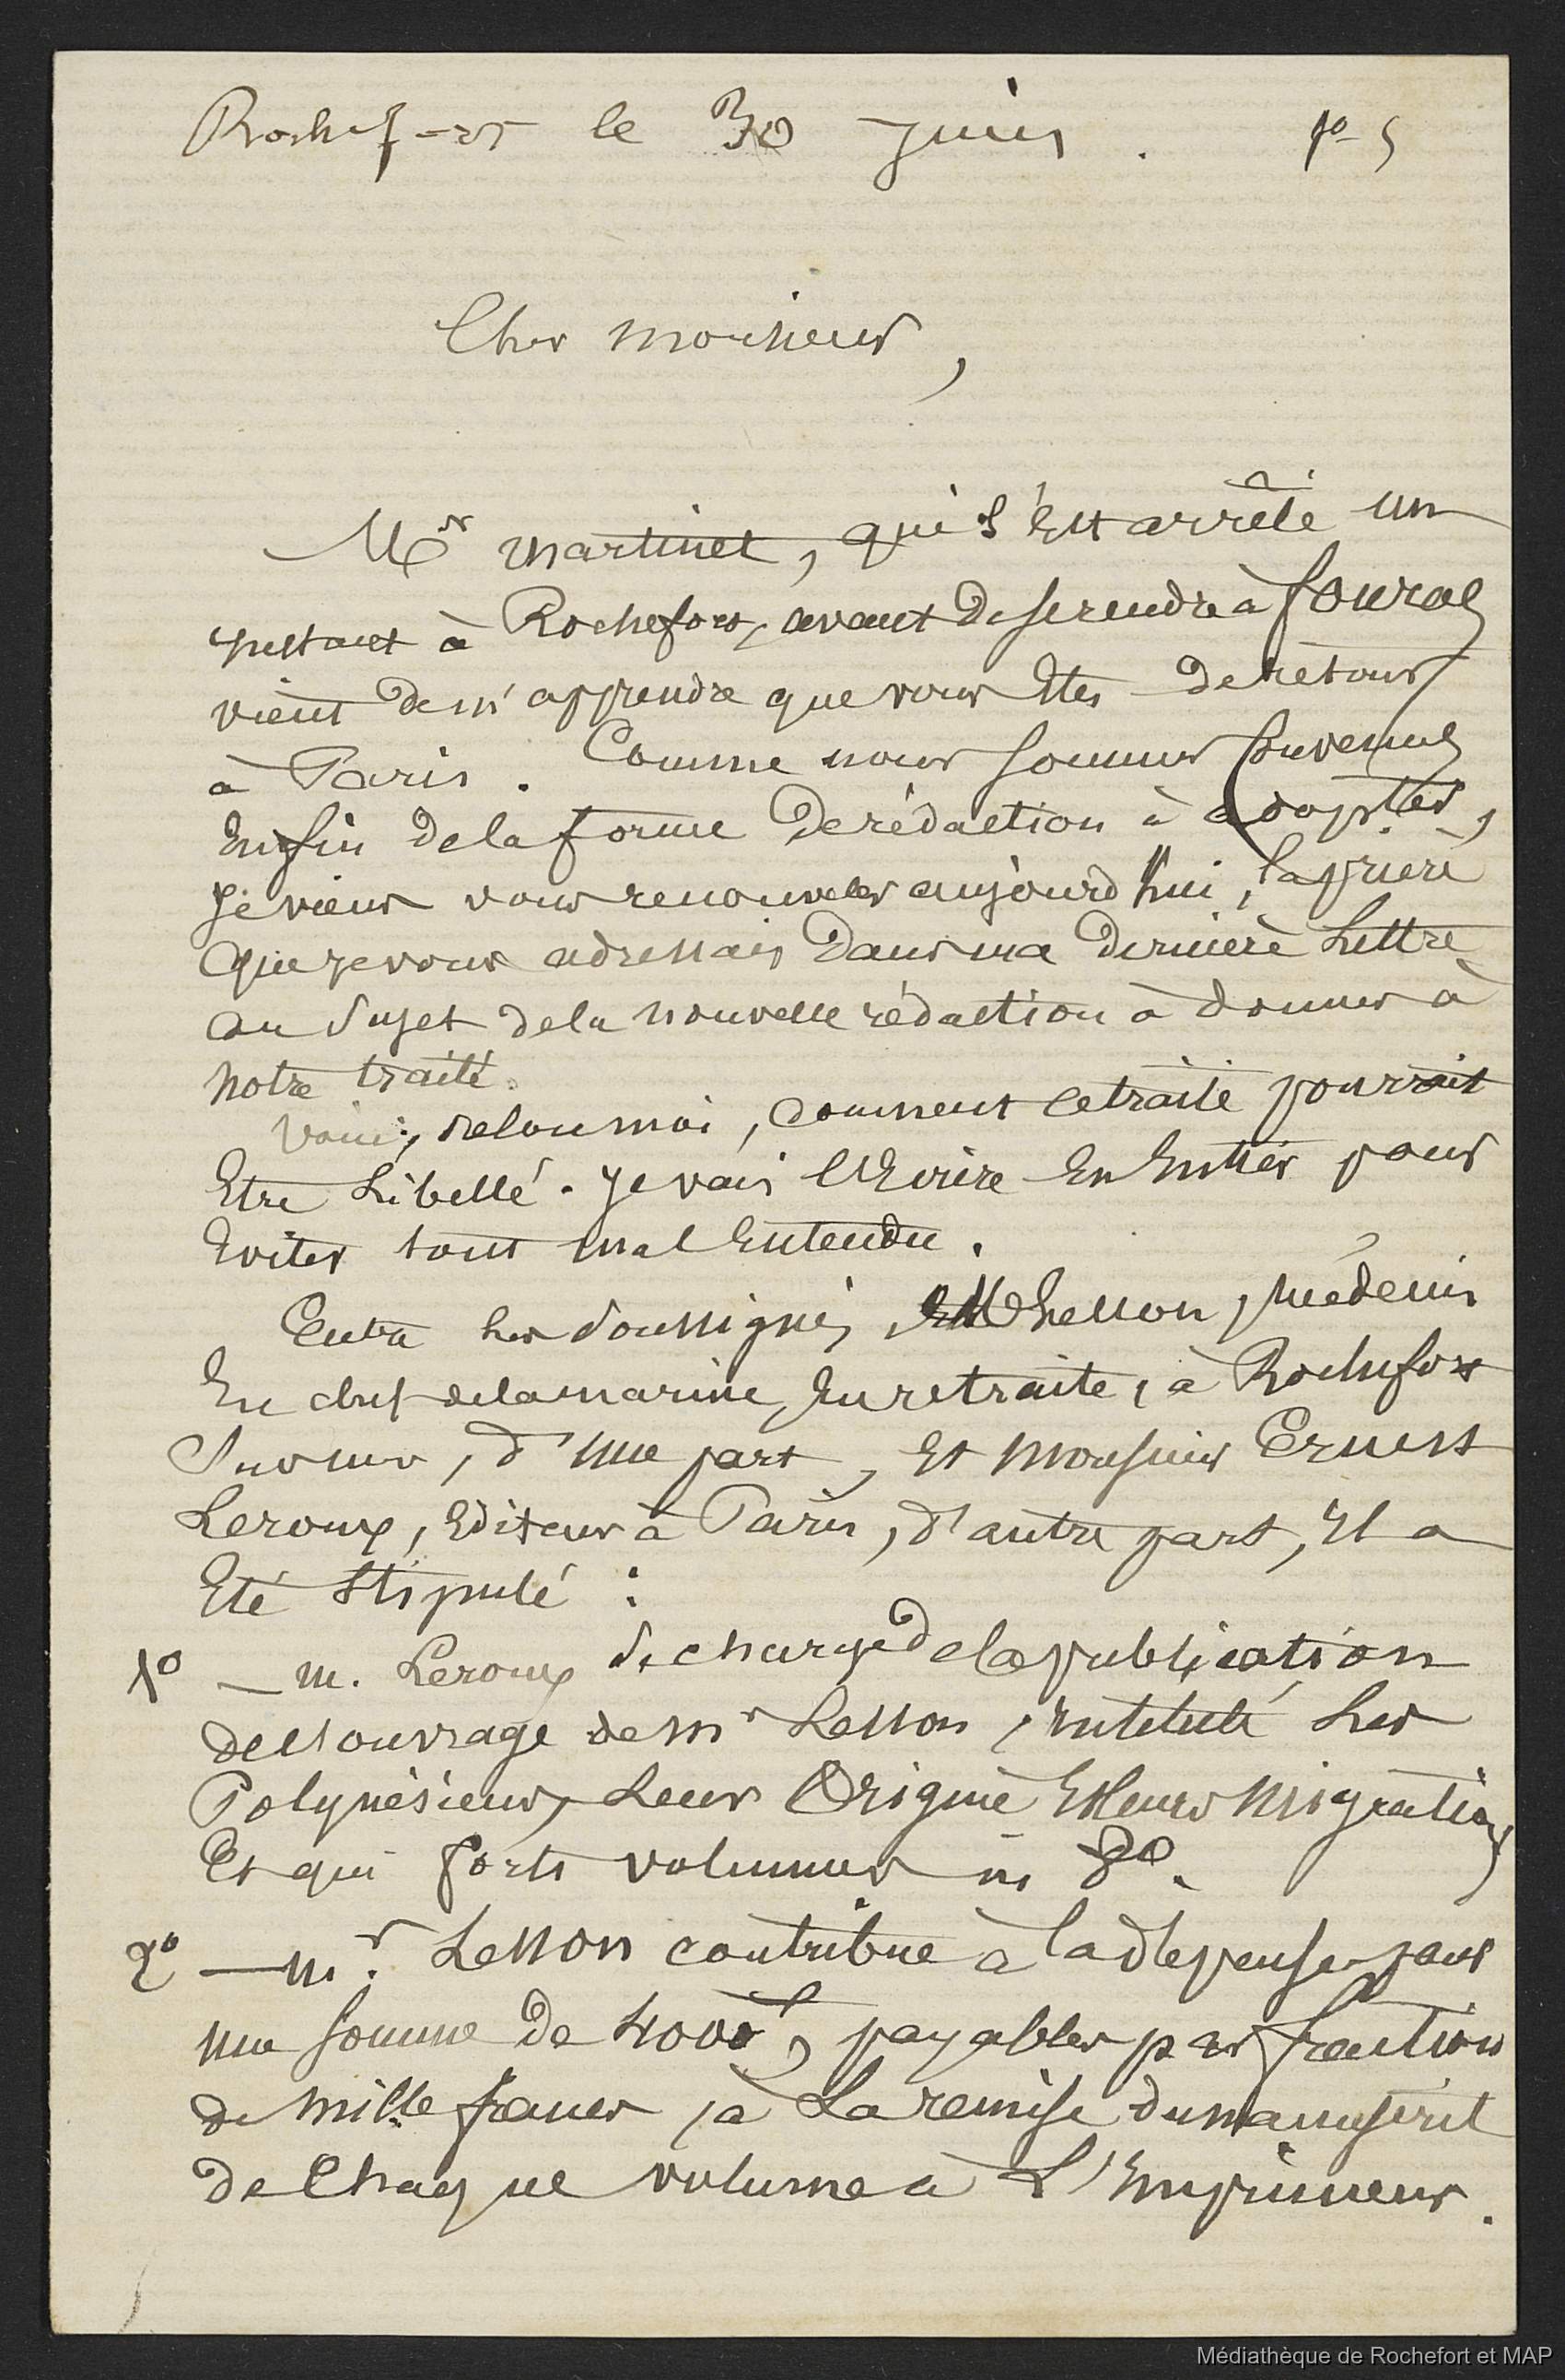 Rochefort le 30 juin . fo 5
Cher monsieur,
Mr Martinet, qui s'est arrêté un
instant à Rochefort, avant de se rendre à Fouras
vient de m'apprendre que vous êtes de retour
à Paris. Comme nous sommes convenus
Enfin de la forme de rédaction à adopter,
je viens vous renouveler aujourd'hui, la prière
que je vous adressais dans ma dernière Lettre
au sujet de la nouvelle rédaction à donner à
notre traité.
Voici, selon moi, comment ce traité pourrait
Etre Libellé. Je vais l'Ecrire En Entier pour
Eviter tout mal Entendu.
Entre les soussignés, Lesson, médecin
En chef de la marine, En retraite, à Rochefort
sur mer, d'une part, Et monsieur Ernest
Leroux, Editeur à Paris, d'autre part, Il a
Eté Stipulé :
1o — m. Leroux se charge de la publication
de l'ouvrage de mr Lesson, intitulé Les
Polynésiens, Leur Origine Et leurs migrations
Et qui forts volumes in 8o.
2o — mr. Lesson contribue à la dépense pour
une somme de 4000f, payables par fraction
de mille francs, à La remise du manuscrit
de Chaque volume à L'Imprimeur.
Médiathèque de Rochefort et MAP